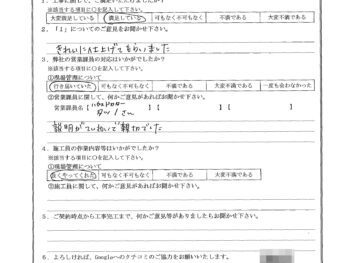 1．工事に関して、ご満足いただけましたか？
※該当する項目に○を記入して下さい。
大変満足している　満足している　可も無く不可も無く　不満である　大変不満である
2．「1」についてのご意見をお聞かせ下さい。
きれいに仕上げてもらいました
3．弊社の営業課員の対応はいかがでしたか？
※該当する項目に○を記入して下さい。
①現場管理について
行き届いていた　可も無く不可も無く　不満である　大変不満である　一度も会わなかった
②営業課員に関して、何かご意見があればお聞かせ下さい。
営業課員名【　さん　】【　】
説明がていねいで親切でした
4．施工員の作業内容等はいかがでしたか？
※該当する項目に○を記入して下さい。
①現場管理について
良くやってくれた　可も無く不可も無く　不満である　大変不満である
②施工員に関して、何かご意見があればお聞かせ下さい。
5．ご契約時点から工事完工まで、何かご意見等がありましたらお聞かせ下さい。
6．よろしければ、Googleへのクチコミのご協力をお願いいたします。